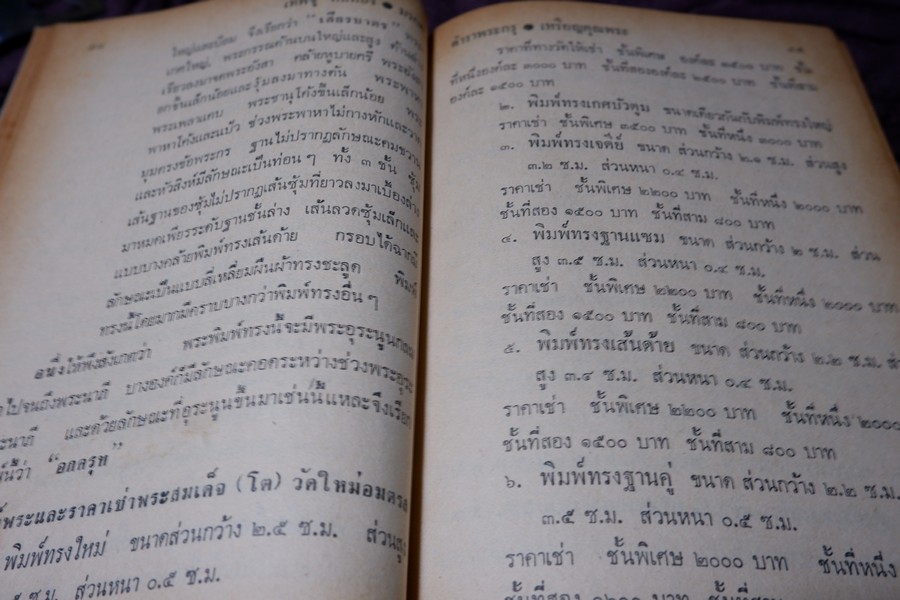 ใหญ่และน้อย จึงเรียกว่า "เศียรบาตร"
เกศใหญ่, พระกรรณด้านบนใหญ่และสูง
เรียวลงมาจดพระอังสา คล้ายหูบายศรี พระอังสา
ยกขึ้นเล็กน้อยและรุ้งลงมาทางด้น พระพาหา
พระเพลาแคบ พระชานุโค้งขึ้นเล็กน้อย พระ
พาหาโค้งและแบ้ว ช่วงพระพาหาไม่กางหักและวาด
มุมตรงข้อพระกร ฐานไม่ปรากฏลักษณะคมขวาน
และหัวสิงห์มีลักษณะเป็นท่อนๆ ทั้ง ๓ ชั้น ซุ้ม
เส้นฐานของซุ้มไม่ปรากฏเส้นซุ้มที่ยาวลงมาเบื้องล่าง
มาหมดเพียงระดับฐานชั้นล่าง เส้นลวดซุ้มเล็กและ
แบบบางคล้ายพิมพ์ทรงเส้นด้าย กรอบได้ฉากมี
ลักษณะเป็นแบบสี่เหลี่ยมผืนผ้าทรงชะลูด พิมพ์
ทรงนี้โดยมากมีคราบบางกว่าพิมพ์ทรงอื่นๆ
อนึ่งให้พึงสังเกตว่า พระพิมพ์ทรงนี้จะมีพระอุระนูนกลม
ไปจนถึงพระนาภี บางองค์ก็มีลักษณะคอดระหว่างช่วงพระอุระ
และด้วยลักษณะที่อุระนูนขึ้นมาเช่นนี้แหละจึงเรียก
นี้ว่า "อกครุฑ"
พระและราคาเช่าพระสมเด็จ (โต) วัดใหม่อมตรส
พิมพ์ทรงใหม่ ขนาดส่วนกว้าง ๒.๕ ซ.ม. ส่วนสูง
ซ.ม. ส่วนหนา ๐.๕ ซ.ม.
ตำราพระกรุ • เหรียญคุณพระ
ราคาที่ทางวัดให้เช่า ชั้นพิเศษ องค์ละ ๔๕๐๐ บาท ชั้น
ที่หนึ่งองค์ละ ๓๐๐๐ บาท ชั้นที่สององค์ละ ๒๕๐๐ บาท ชั้นที่สาม
องค์ละ ๑๕๐๐ บาท
๒. พิมพ์ทรงเกศบัวตูม ขนาดเดียวกันกับพิมพ์ทรงใหญ่
ราคาเช่า ชั้นพิเศษ ๓๕๐๐ บาท ชั้นที่หนึ่ง ๓๐๐๐ บาท
๓. พิมพ์ทรงเจดีย์ ขนาด ส่วนกว้าง ๒.๑ ซ.ม. ส่วนสูง
๓.๒ ซ.ม. ส่วนหนา ๐.๔ ซ.ม.
ราคาเช่า ชั้นพิเศษ ๒๒๐๐ บาท ชั้นที่หนึ่ง ๒๐๐๐ บาท
ชั้นที่สอง ๑๕๐๐ บาท ชั้นที่สาม ๘๐๐ บาท
๔. พิมพ์ทรงฐานแซม ขนาด ส่วนกว้าง ๒ ซ.ม. ส่วน
สูง ๓.๕ ซ.ม. ส่วนหนา ๐.๔ ซ.ม.
ราคาเช่า ชั้นพิเศษ ๒๒๐๐ บาท ชั้นที่หนึ่ง ๒๐๐๐ บาท
ชั้นที่สอง ๑๕๐๐ บาท ชั้นที่สาม ๘๐๐ บาท
๕. พิมพ์ทรงเส้นด้าย ขนาด ส่วนกว้าง ๒.๒ ซ.ม.
สูง ๓.๔ ซ.ม. ส่วนหนา ๐.๔ ซ.ม.
ราคาเช่า ชั้นพิเศษ ๒๒๐๐ บาท ชั้นที่หนึ่ง ๒๐๐๐
ชั้นที่สอง ๑๕๐๐ บาท ชั้นที่สาม ๘๐๐ บาท
๖. พิมพ์ทรงฐานคู่ ขนาด ส่วนกว้าง ๒.๒ ซ.ม.
๓.๕ ซ.ม. ส่วนหนา ๐.๕ ซ.ม.
ราคาเช่า ชั้นพิเศษ ๒๐๐๐ บาท ชั้นที่หนึ่ง